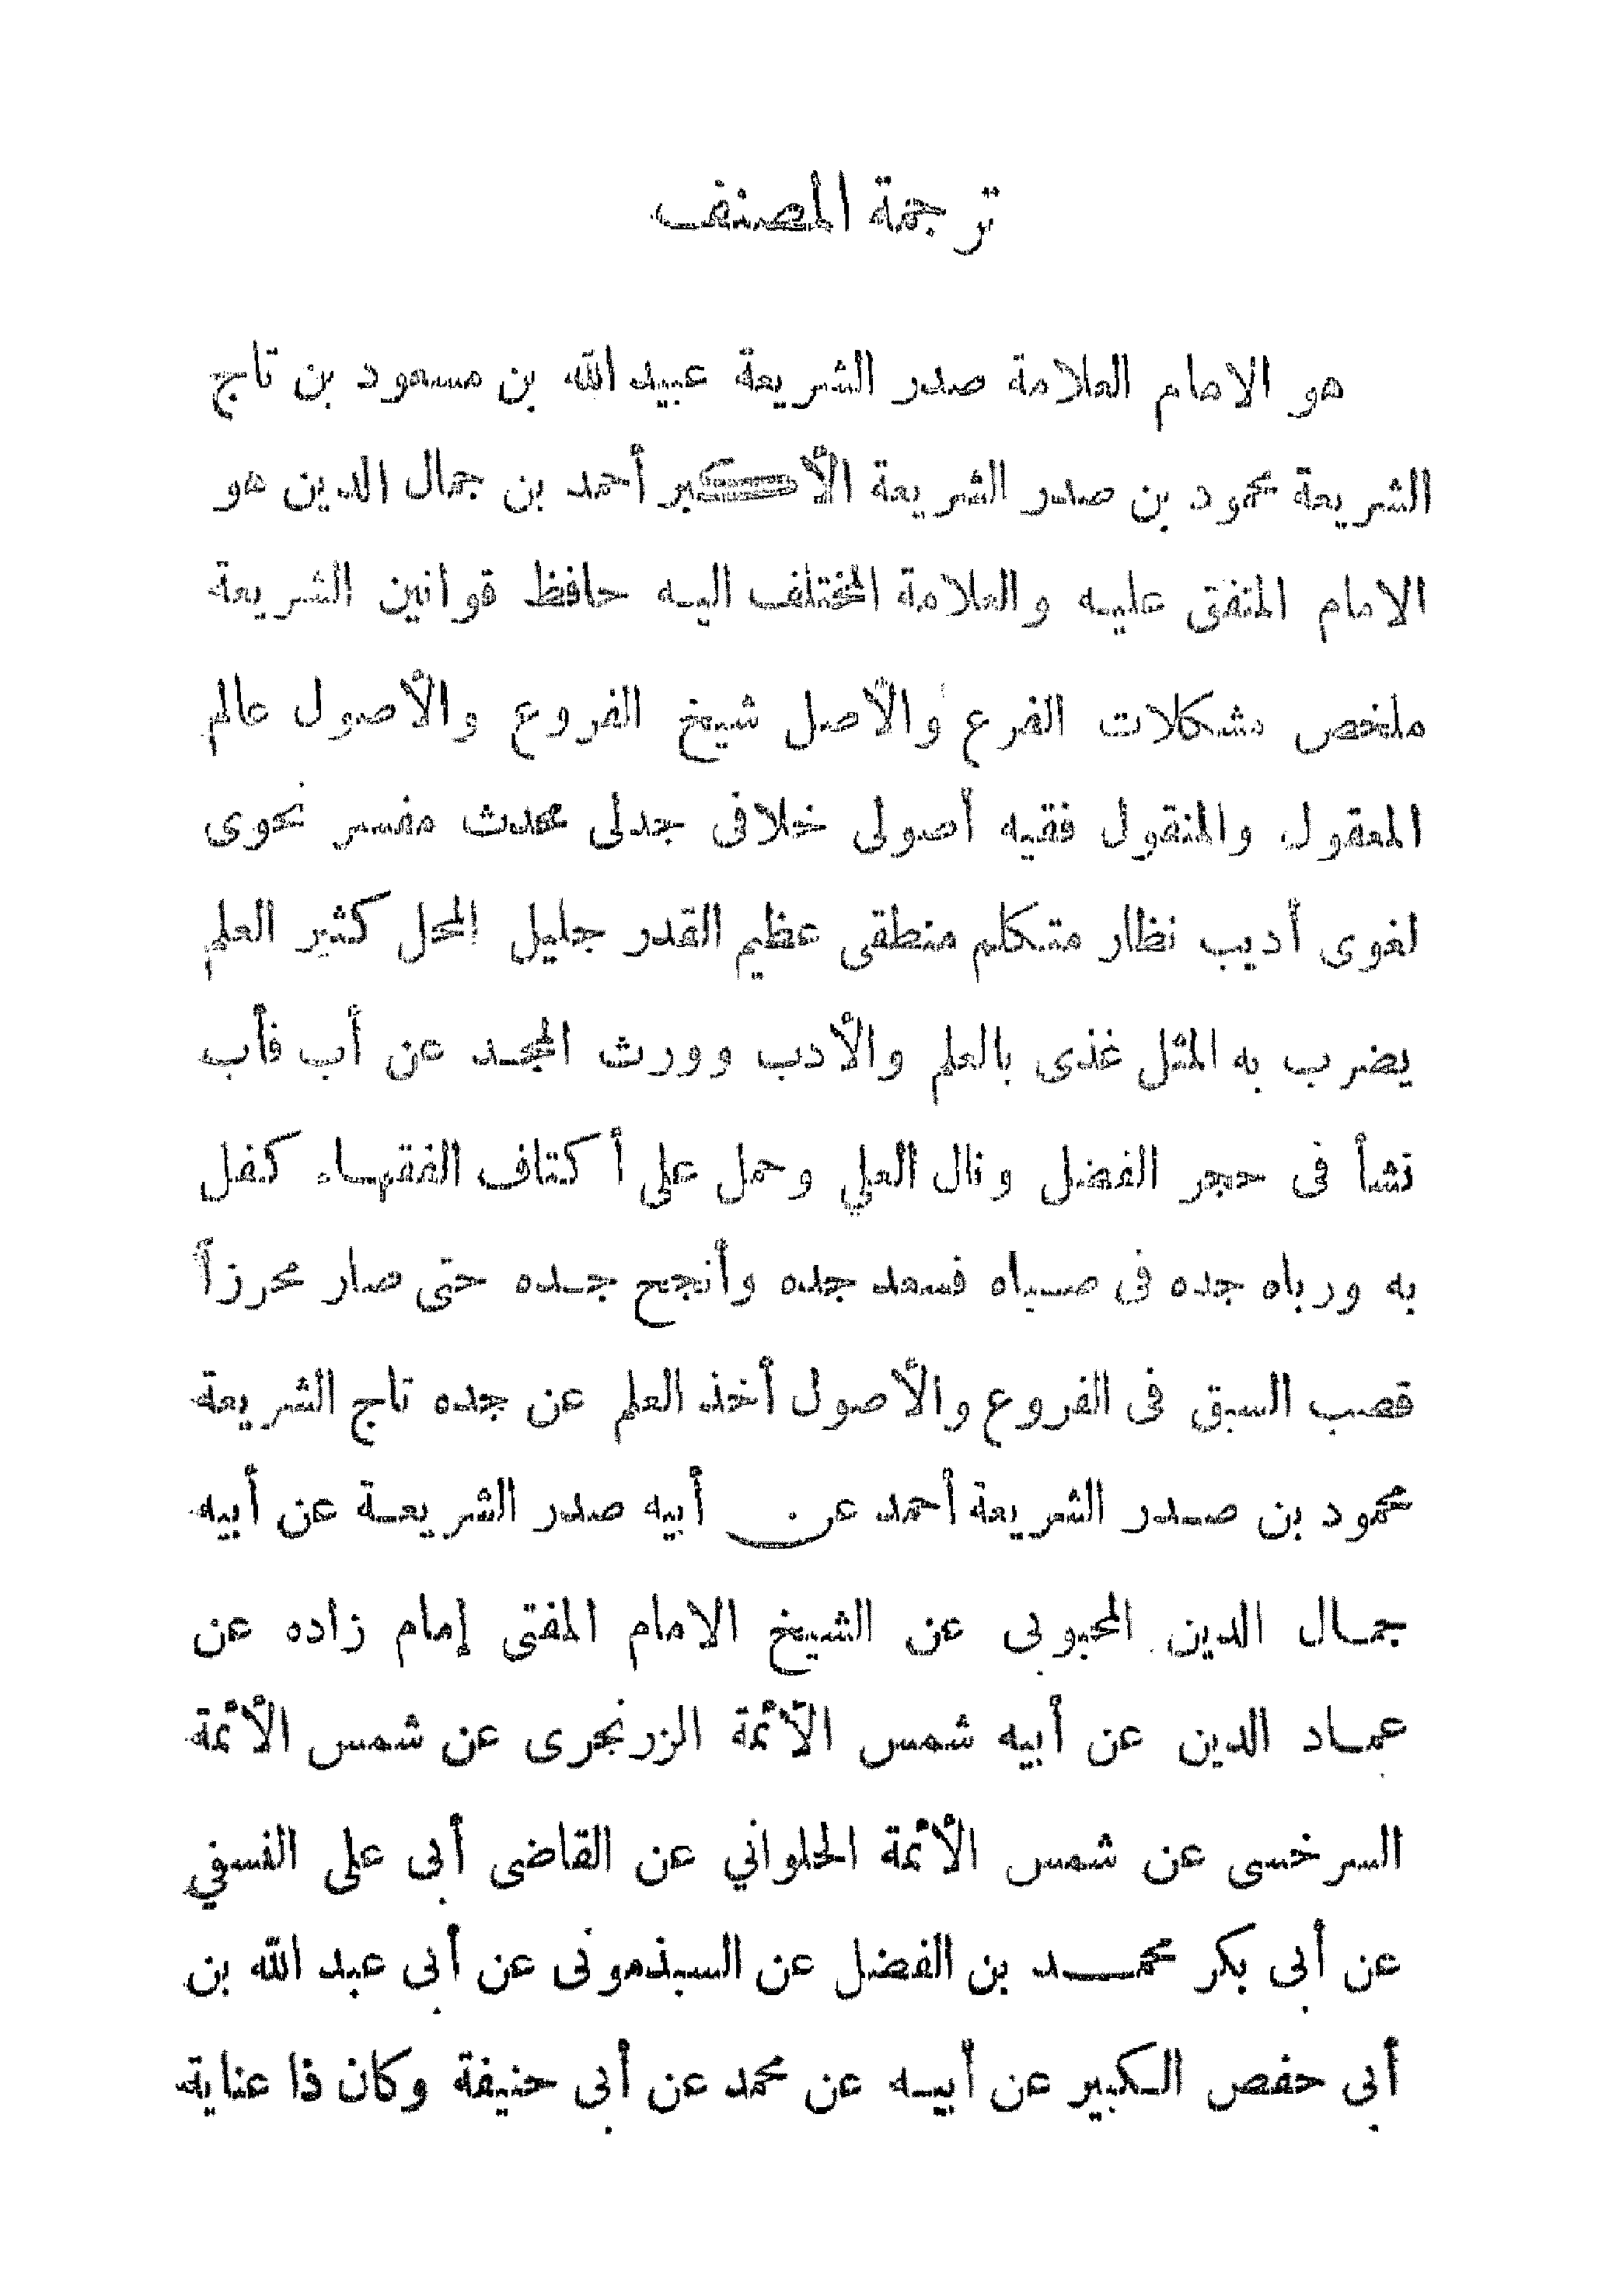 ترجمة المصنف
هو الامام العلامة صدر الشريعة عبيد الله بن مسعود بن تاج
الشريعة محمود بن صدر الشريعة الأكبر أحمد بن جمال الدين هو
الامام المتفق عليه والعلامة المختلف اليه حافظ قوانين الشريعة
ملخص مشكلات الفرع والأصل شيخ الفروع والأصول عالم
المعقول والمنقول فقيه أصولى خلافى جدلى محدث مفسر نحوى
لغوى أديب نظار متكلم منطقى عظيم القدر جليل المحل كثير العلم
يضرب به المثل غذى بالعلم والأدب وورث المجد عن أب فأب
نشأ فى حجر الفضل ونال العلي وحمل على أكتاف الفقهاء كفل
به ورباه جده فى صباه فسعد جده وأنجح جده حتى صار محرزاً
قصب السبق فى الفروع والأصول أخذ العلم عن جده تاج الشريعة
محمود بن صدر الشريعة أحمد عن أبيه صدر الشريعة عن أبيه
جمال الدين المحبوبى عن الشيخ الامام المفتى إمام زاده عن
عماد الدين عن أبيه شمس الأئمة الزرنجرى عن شمس الأئمة
السرخسى عن شمس الأئمة الحلواني عن القاضى أبى على النسفي
عن أبى بكر محمد بن الفضل عن السبذمونى عن أبى عبد الله بن
أبى حفص الكبير عن أبيه عن محمد عن أبى حنيفة وكان ذا عناية